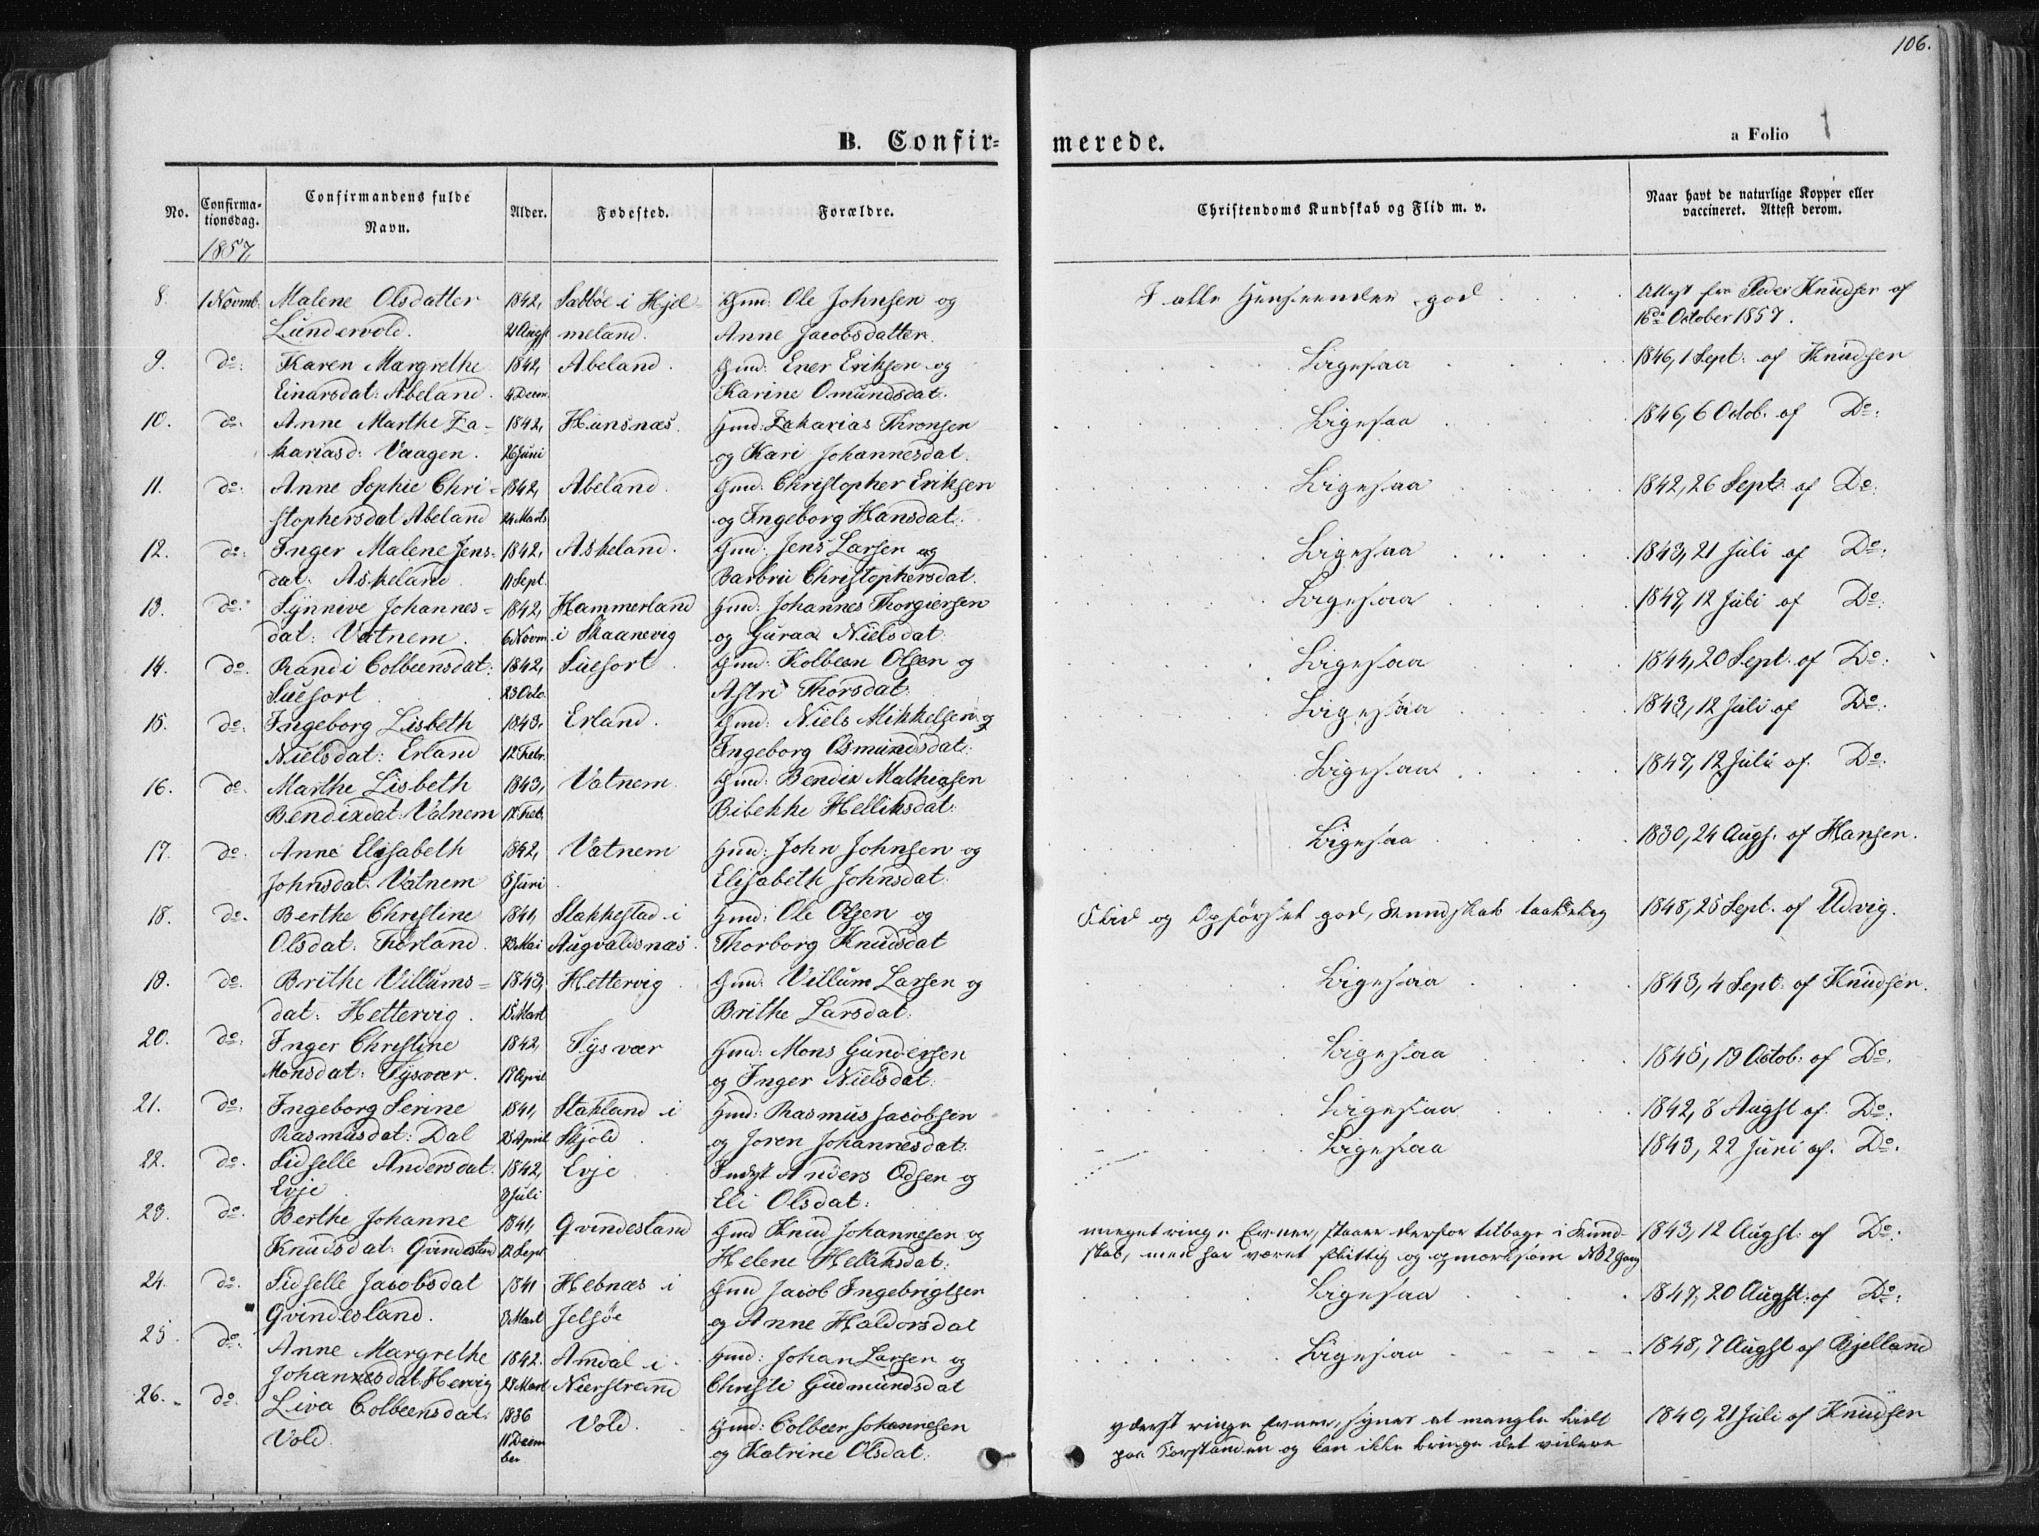 106.
B. Confir=
merede.
a Folio
No.
Confirma-
tionsdag.
Confirmandens fulde
Navn.
Alder.
Fødested.
Forældre.
Christendoms Kundskab og Flid m. v.
Naar havt de naturlige Kopper eller
vaccineret. Attest derom.
1857,
8. 1 Novmb. Malene Olsdatter 1842, Sætbøe i Hjel- Gmd: Ole Johnsen og I alle Henseender god Attest fra Peder Knudsen af
Lundevold. 21 Augst meland. Anne Jacobsdatter. 16de October 1857.
9. do: Karen Margrethe 1842, Abeland. Gmd: Ener Eriksen og Ligesaa 1846, 1 Sept: af Knudsen
Einarsdat: Abeland. 4 Decm. Karine Omundsdat:
10. do: Anne Marthe Za- 1842, Hunsnæs. Gmd: Zakarias Thronsen Ligesaa 1846, 6 Octob. af Do:
kariasd: Vaagen. 26 Juni og Kari Johannesdat.
11. do: Anne Sophie Chri- 1842, Abeland. Gmd: Christopher Eriksen Ligesaa 1842, 26 Sept. af Do:
stophersdat Abeland 24 Marts og Ingeborg Hansdat:
12. do: Inger Malene Jens- 1842, Askeland. Gmd: Jens Larsen og Ligesaa 1843, 21 Juli af Do:
dat: Askeland. 11 Sept. Barbru Christophersdat.
13. do: Synnive Johannes- 1842, Hammerland Gmd: Johannes Thorgiersen Ligesaa 1847, 12 Juli af Do:
dat: Vatnem. 6 Novm. i Skaanevig og Guraa Nielsdat:
14. do: Randi Colbeensdat: 1842, Suefort. Gmd: Kolbeen Olsen og Ligesaa 1844, 20 Sept. af Do:
Suefort. 23 Octo. Astri Thorsdat:
15. do: Ingeborg Lisbeth 1843. Erland. Gmd: Niels Mikkelsen og Ligesaa 1843, 12 Juli af Do:
Nielsdat: Erland 12 Febr. Ingeborg Osmundsdat:
16. do: Marthe Lisbeth 1843, Vatnem. Gmd: Bendix Mathiasen Ligesaa 1847, 12 Juli af. Do:
Bendixdat: Vatnem 17 Feb. Bibekke Helliksdat:
17. do: Anne Elisabeth 1842, Vatnem Gmd: John Johnsen og Ligesaa 1830, 24 Augs. af Hansen.
Johnsdat: Vatnem 8 Juni Elisabeth Johnsdat:
18. do. Berthe Christine 1841, Stakkestad i Gmd: Ole Olsen og Flid og Opførsel god, Kundskab taalelig 1848, 25 Sept. af Udvig.
Olsdat: Førland. 23 Mai Augvaldsnæs. Thorborg Knudsdat
19. do. Brithe Villums- 1843, Hettervig. Gmd: Villum Larsen og Ligesaa 1843, 4 Sept: af Knudsen.
dat: Hettervig. 15 Mart Brithe Larsdat:
20. do: Inger Christine 1842, Tysvær Gmd: Mons Gundersen Ligesaa 1845, 19 Octob: af Do.
Monsdat: Tysvær. 19 April og Inger Nielsdat:
21. do: Ingeborg Serine 1841, Stakland i Gmd: Rasmus Jacobsen Ligesaa 1842, 8 Augst af. Do:
Rasmusdat: Dal 25 April Skjold. og Joren Johannesdat:
22. do. Sidselle Andersdat: 1842, Evje. Indst Anders Odsen og Ligesaa 1843, 22 Juni af. Do.
Evje 3 Juli Eli Olsdat:
23. do. Berthe Johanne 1841, Qvindesland Gmd Knud Johannesen og meget ringe Evner, staaer derfor tilbage i Kund- 1843, 12 Augst: af Do:
Knudsdat: Qvindesland 12 Sept Helene Helliksdat: skab, men har været flittig og opmærksom NB 2 Gang
24. do: Sidselle Jacobsdat 1841 Hebnæs i Gmd Jacob Ingebrigtsen Ligesaa 1847, 20 Augst: af Do:
Qvindesland. 3 Mart Jelsøe og Anne Haldorsdat
25. do. Anne Margrethe 1842. Amdal i Gmd: Johan Larsen og Ligesaa 1848, 7 Augst af Bjelland
Johannesdat: Hervig 28 Mart Nierstrand Christi Gudmundsdat
26. do: Liva Colbeensdat: 1836 Vold. Gmd: Colbeen Johannesen yderst ringe Evner, synes at mangle lidt 1840, 21 Juli af Knudsen
Vold. 11 Decem og Katrine Olsdat: paa Forstanden og kan ikke bringe det videre
ber